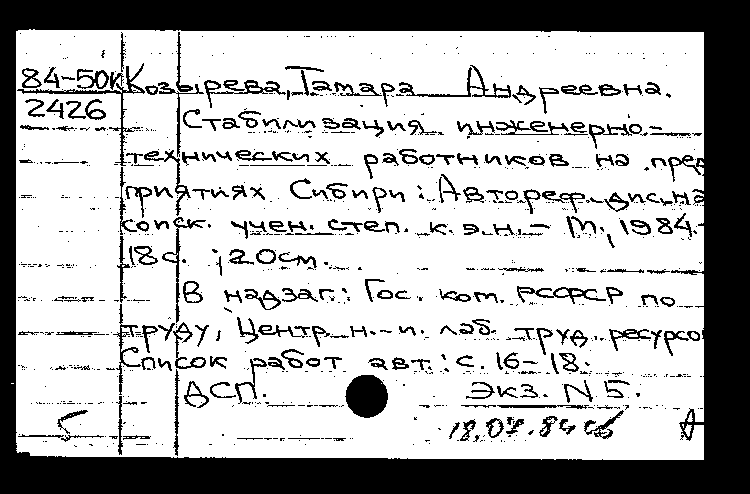 84-50к Козырева, Тамара Андреевна.
2426
Стабилизация инженерно-
технических работников на пред
приятиях Сибири: Автореф. дис. на
соиск. учен. степ. к. э. н. - М., 1984.-
18с. ; 20см.
В надзаг.: Гос. ком. РСФСР по
труду, Центр. н.-и. лаб. труд. ресурсо
Список работ авт.: с. 16-18.
ДСП. Экз. N 5.
18.07.84